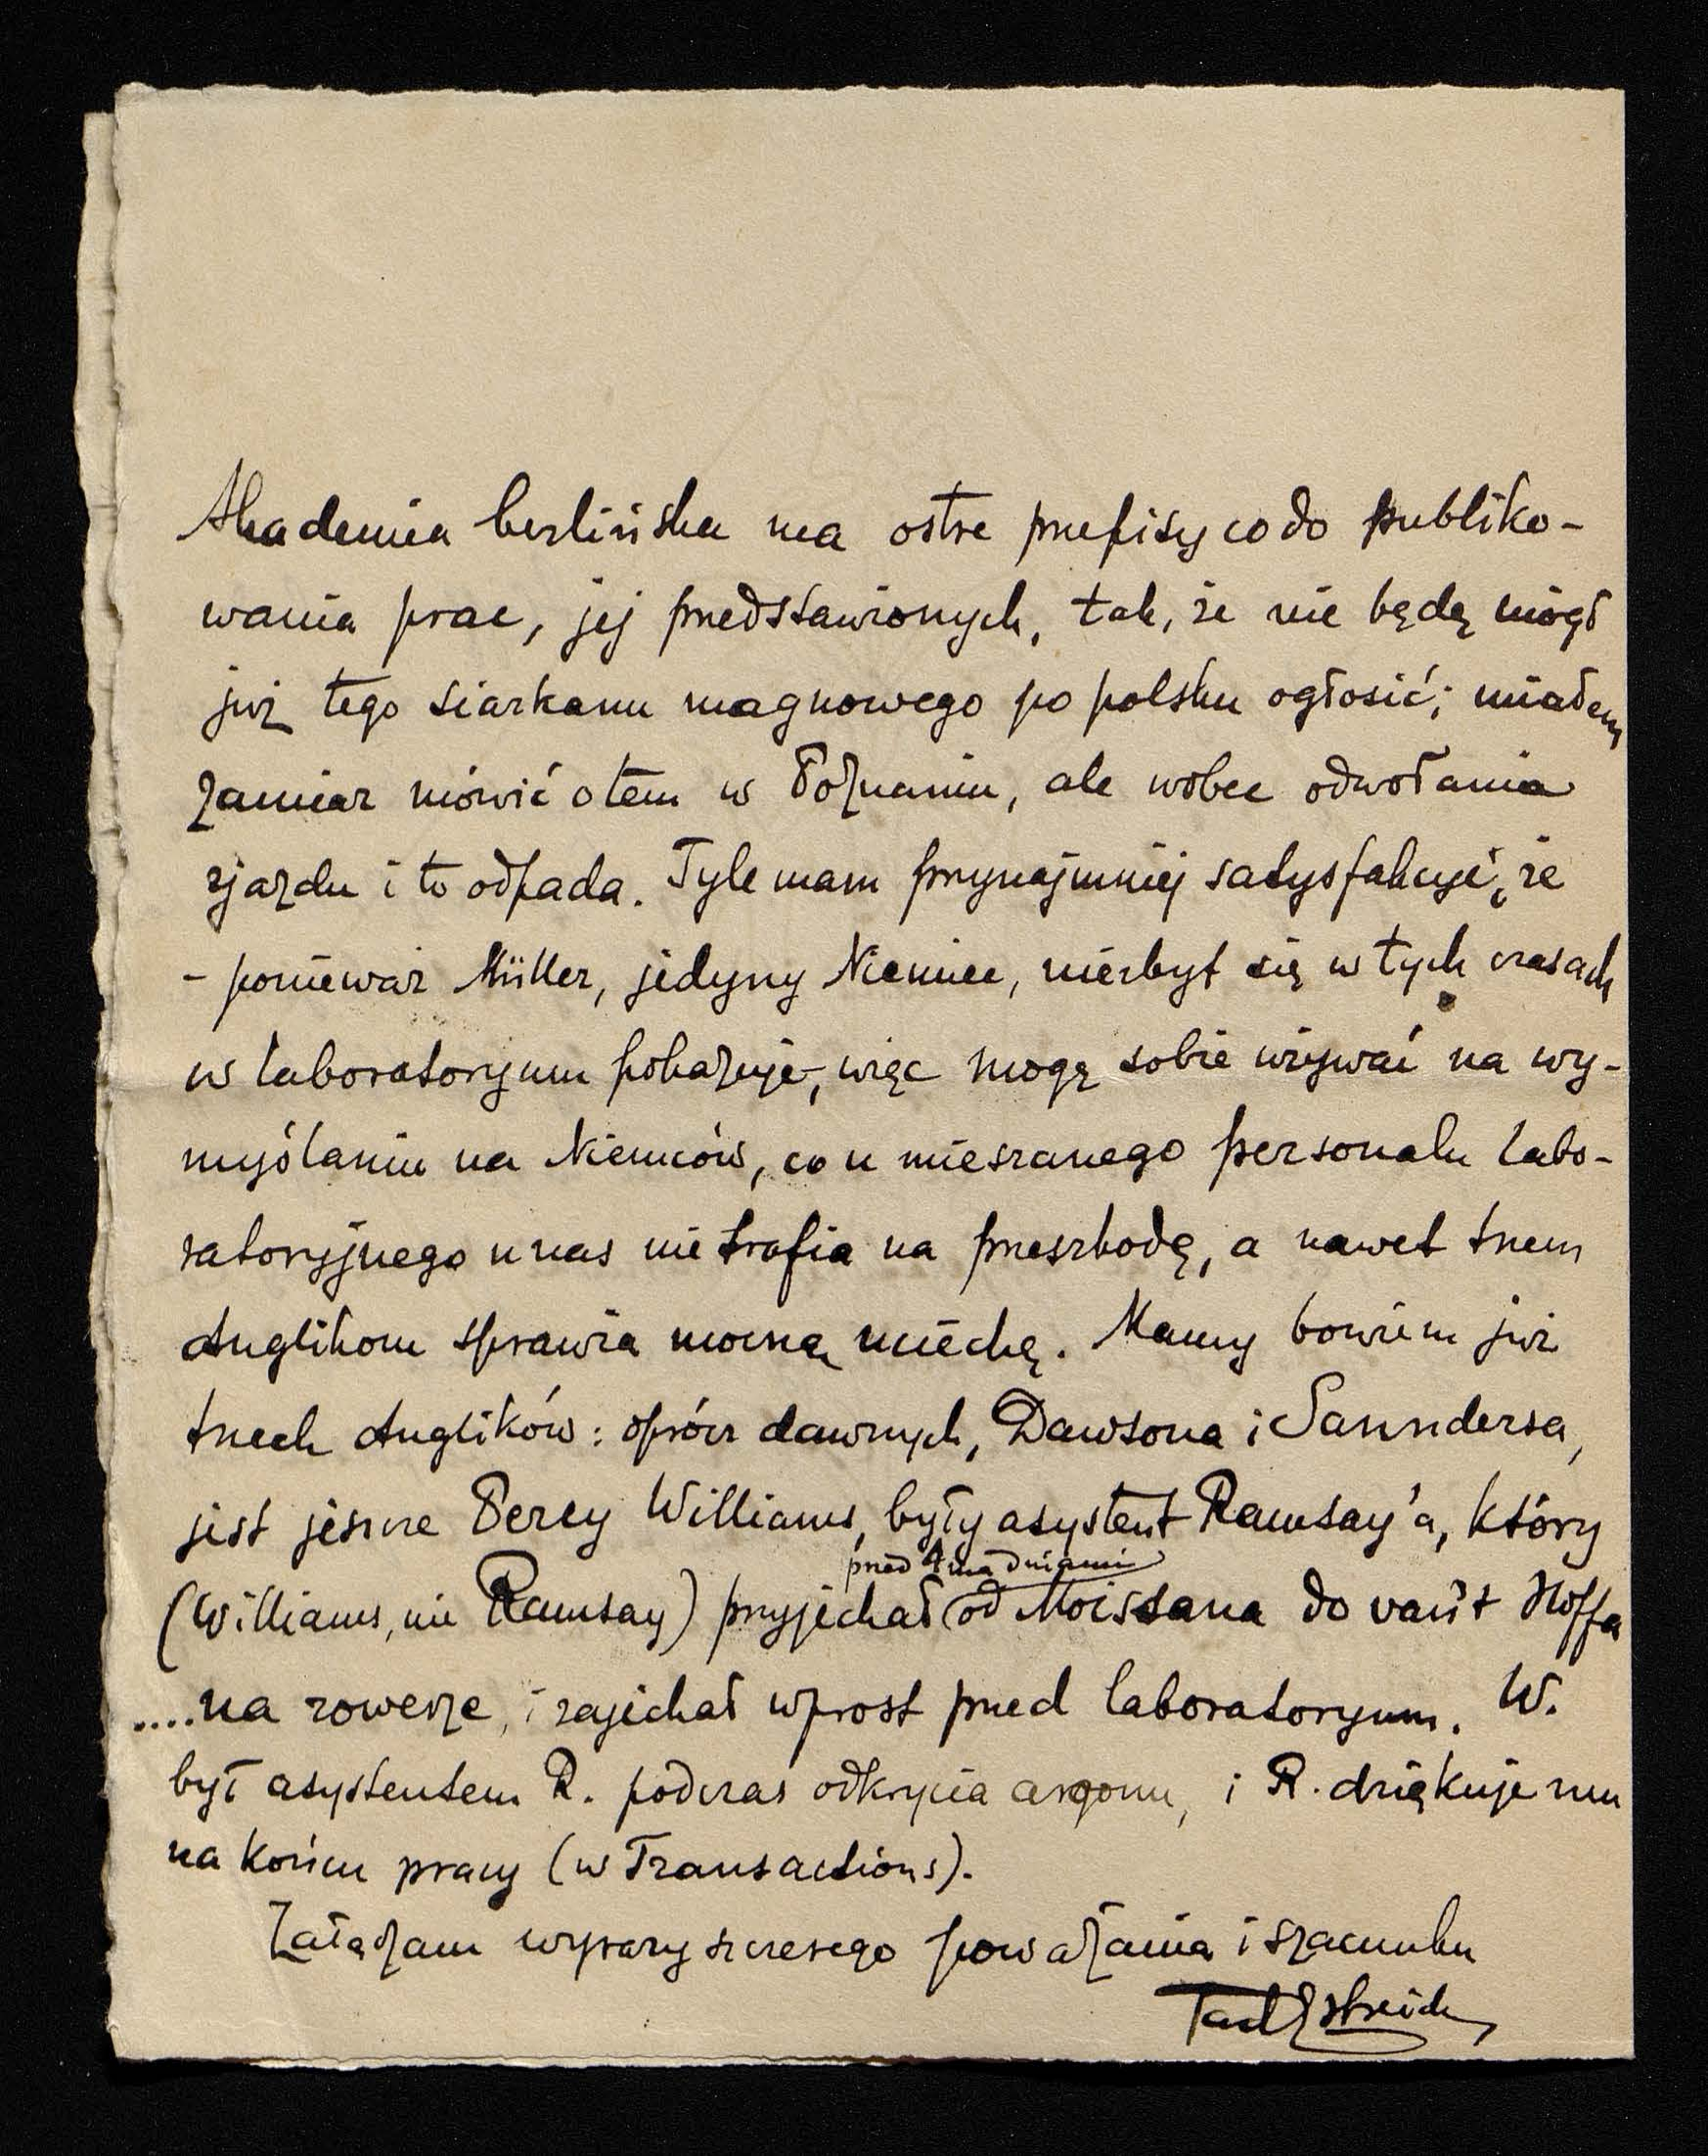 Akademia berlińska ma ostre przepisy co do publiko-
wania prac, jej przedstawionych, tak, że nie będę mógł
już tego siarkanu magnowego po polsku ogłosić; miałem
zamiar mówić o tem w Poznaniu, ale wobec odwołania
zjazdu i to odpada. Tyle mam przynajmniej satysfakcyi, że
- ponieważ Müller, jedyny Niemiec, niezbyt się w tych czasach
w laboratoryum pokazuje, więc mogę sobie używać na wy-
myślaniu na Niemców, co u mieszanego personalu labo-
ratoryjnego u nas nie trafia na przeszkodę, a nawet trzem
Anglikom sprawia mocną uciechę. Mamy bowiem już
trzech Anglików: oprócz dawnych, Dawsona i Saundersa,
jest jeszcze Percy Williams, były asystent Ramsay'a, który
przed 4ma dniami
(Williams, nie Ramsay) przyjechał od Moissana do van't Hoffa
....na rowerze, i zajechał wprost przed laboratoryum. W.
był asystentem R. podczas odkrycia argonu, i R. dziękuje mu
na końcu pracy (w Transactions).
Załączam wyrazy szczerego poważania i szacunku
TadEstreicher